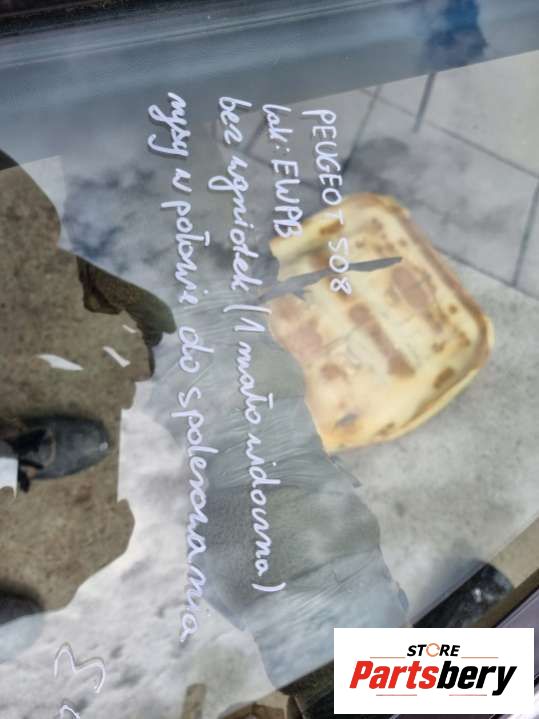 PEUGEOT 508
lak: EWPB
bez wgniotek (1 mało widoczna)
rysy w połowie do spolerowania
STORE
Partsbery